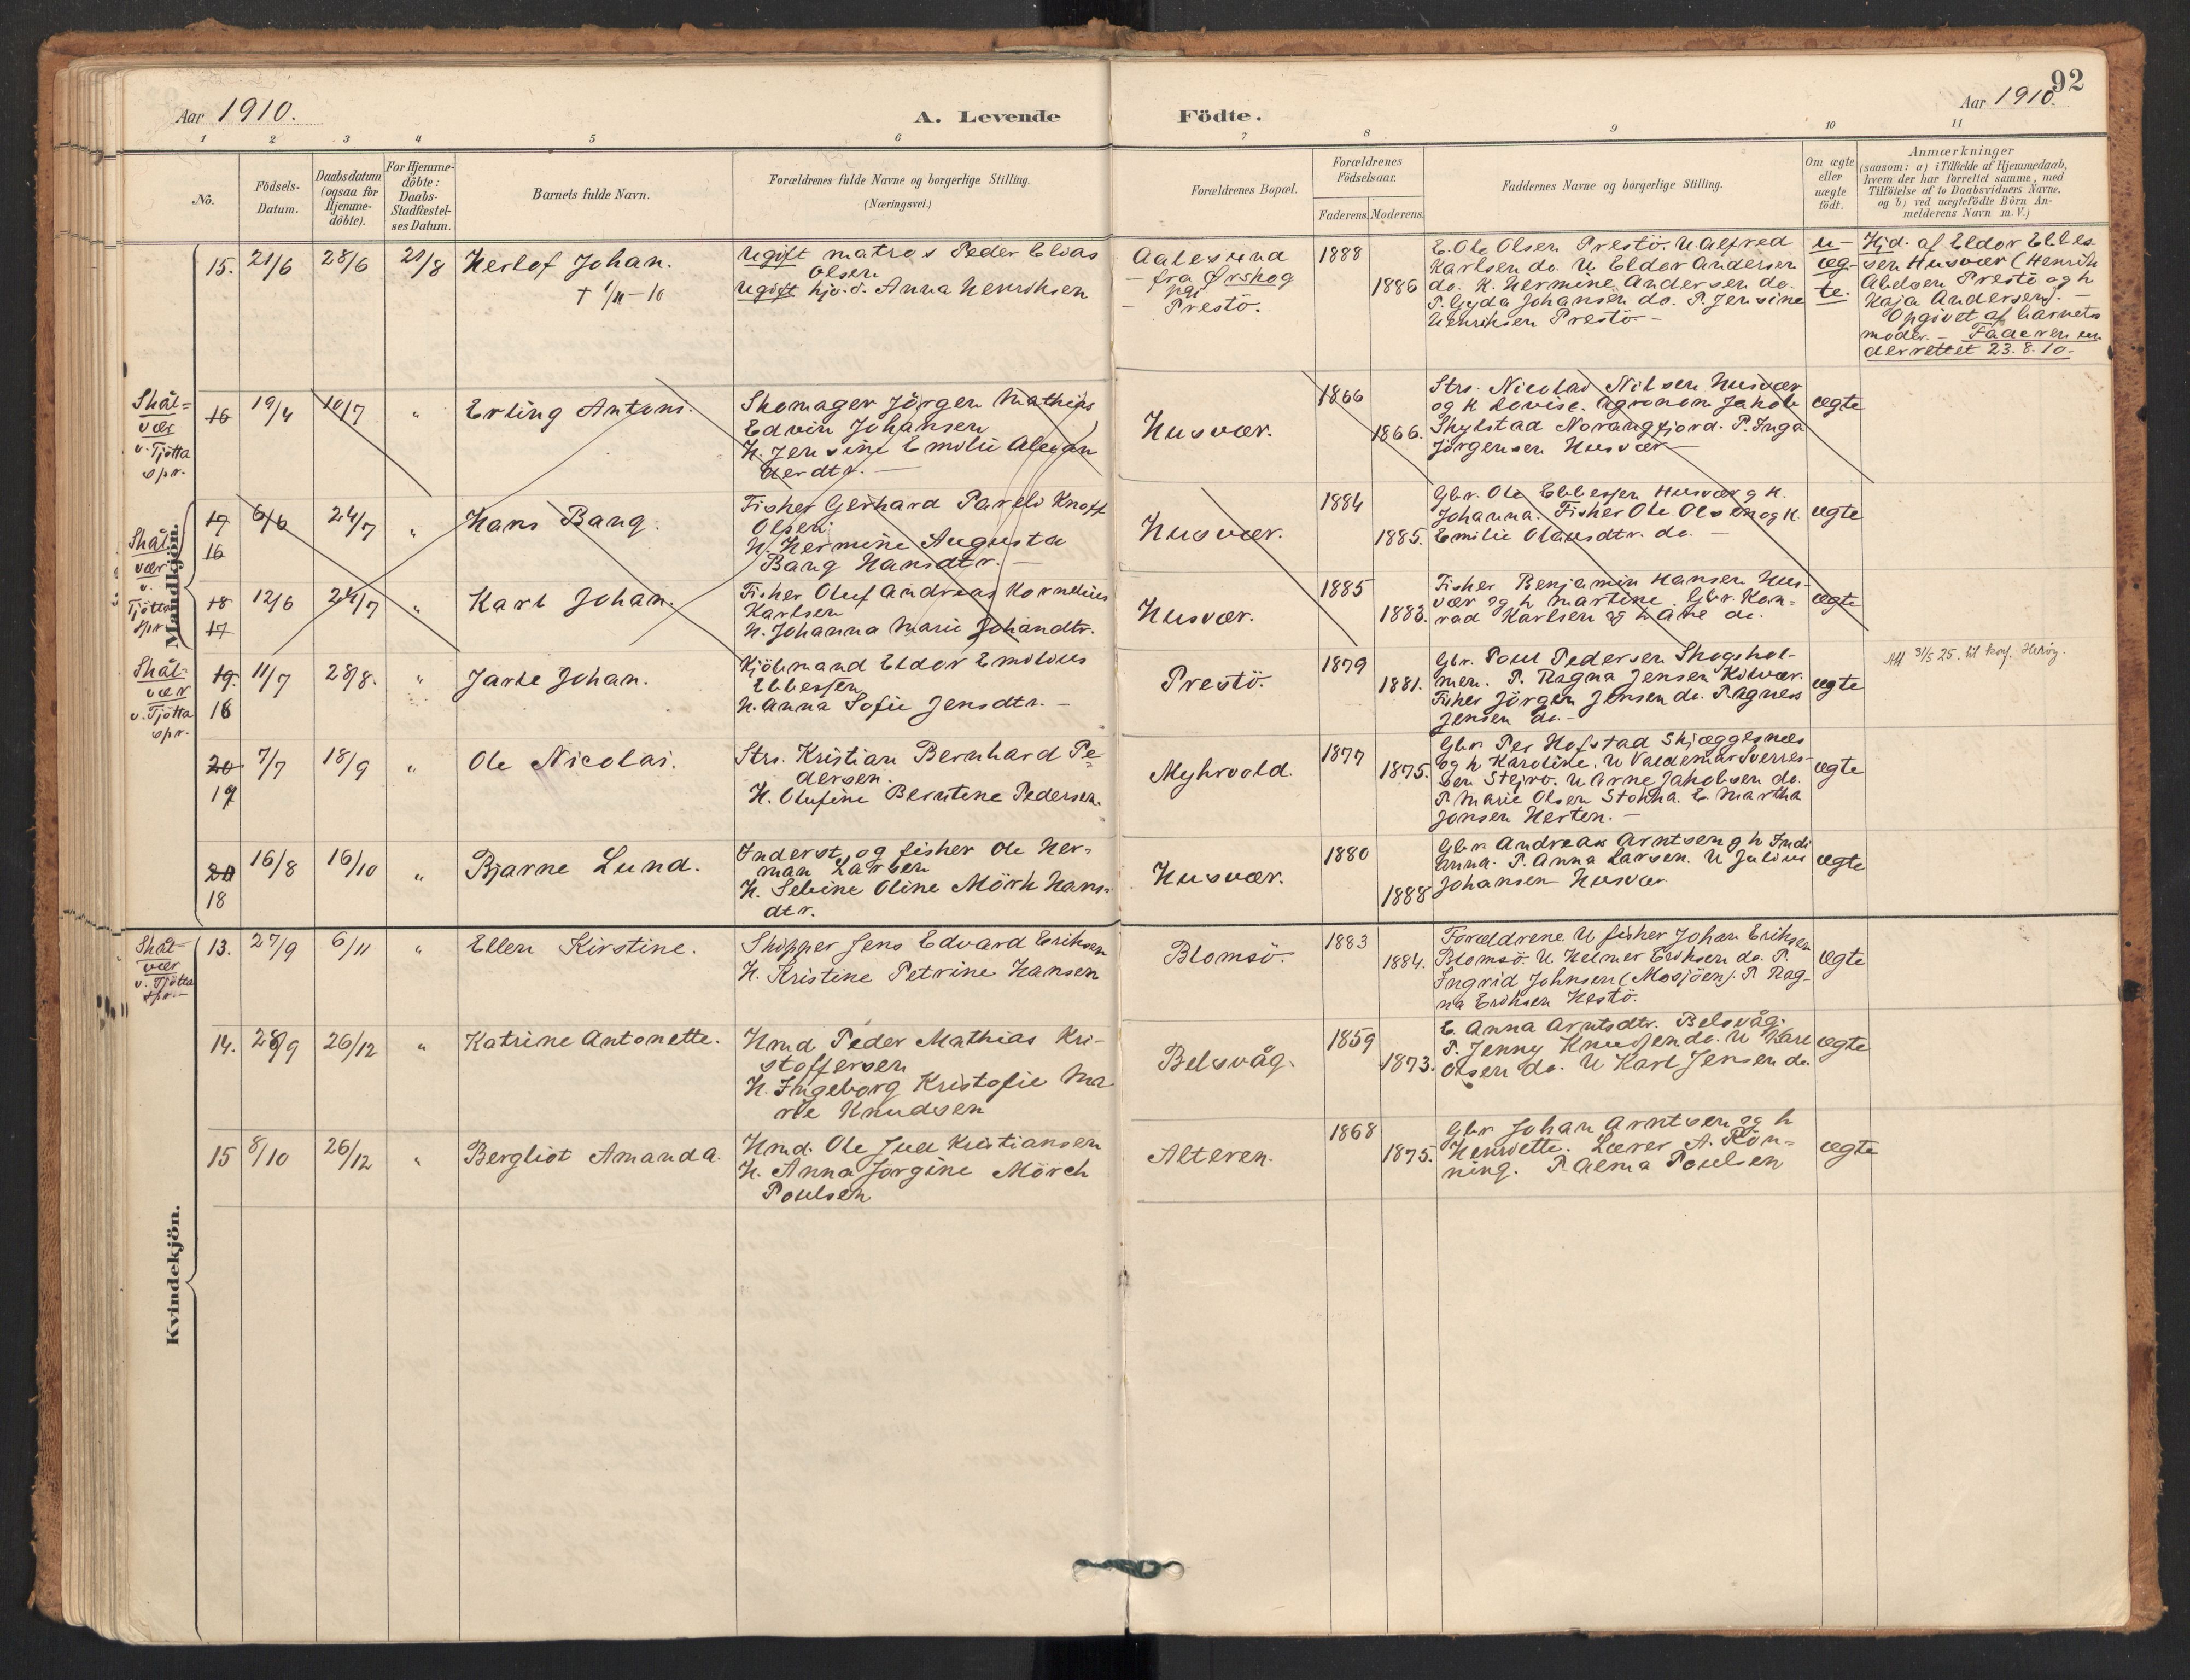 92
Aar 1910. A. Levende Födte. Aar 1910.
1 2 3 4 5 6 7 8 9 10 11
No.
Födsels-
Datum.
Daabsdatum
(ogsaa for
Hjemme-
döbte).
For Hjemme-
döbte:
Daabs-
Stadfæstel-
ses Datum.
Barnets fulde Navn.
Forældrenes fulde Navne og borgerlige Stilling.
(Næringsvei.)
Forældrenes Bopæl.
Forældrenes
Födselsaar.
Faderens. Moderens.
Faddernes Navne og borgerlige Stilling.
Om ægte
eller
uægte
födt.
Anmærkninger
(saasom: a) i Tilfælde af Hjemmedaab,
hvem der har forrettet samme, med
Tilföielse af to Daabsvidners Navne,
og b) ved uægtefödte Börn An-
melderens Navn m. V.)
Mandkjön.
15. 21/6 28/6 21/8 Herlof Johan.
† 1/11-10
Ugift matros Peder Elias
Olsen
Ugift hjv.d. Anna Henriksen
Aalesund
- fra Ørskog
pgj
- Prestö.
1888
1886
E. Ole Olsen Prestö. U. Alfred
Karlsen do. U Eldor Andersen
do. K. Hermine Andersen do.
P. Gyda Johansen do. P. Jensine
Henriksen Prestö -
u-
æg-
te.
Hjd. af Eldor Ebbes
sen Husvær (Henrik
Abelsen Prestö og h
Kaja Andersen). -
Opgivet af barnets
moder. - Faderen un
derrettet 23.8.10.
Skål-
vær
v. Tjötta
spr.
16 19/4 10/7 " Erling Antoni.
Skomager Jörgen Mathias
Edvin Johansen
H. Jensine Emilie Alexan
derdtr. -
Husvær.
1866
1866.
Strs. Nicolai Nilsen Husvær
og K Lovise. Agronom Jakob
Skylstad Norangfjord. P. Inga
Jörgensen Husvær -
ægte
Skål
vær
v.
Tjötta
spr.
17 6/6 24/7 " Hans Bang.
16
Fisker Gerhard Pareli Knoff
Olsen
H. Hermine Augusta
Bang Hansdtr. -
Husvær.
1884
1885.
Gbr. Ole Ebbesen Husvær og K.
Johanna. Fisker Ole Olsen og K.
Emilie Olausdtr. do. -
ægte
18 12/6 24/7 " Karl Johan.
17
Fisker Oluf Andreas Kornelius
Karlsen
H. Johanna Marie Johandtr.
Husvær.
1885
1883.
Fisker Benjamin Hansen Hus-
vær og h Martine. Gbr. Kon-
rad Karlsen og h Ane do.
ægte
Skål-
vær
v. Tjötta
spr.
19. 11/7 28/8. " Jarle Johan.
18
Kjöbmand Eldor Emilius
Ebbesen
H. Anna Sofie Jensdtr. -
Prestö.
1879
1881.
Gbr. Poul Pedersen Skogshol-
men. P. Ragna Jensen Kilvær.
Fisker Jörgen Jensen do. P. Agnes
Jensen do. -
ægte
Att 31/5 25. til konf.
20 7/7 18/9 " Ole Nicolai.
19
Strs. Kristian Bernhard Pe-
dersen.
H. Olufine Berntine Pedersen.
Myhrvold.
1877
1875.
Gbr. Per Hofstad Skjæggesnæs
og h Karoline. U Valdemar Sverres-
sen Stejro. U Arne Jakobsen do.
P. Marie Olsen Stokka. E. Martha
Jonsen Herten. -
ægte
20 16/8 16/10 " Bjarne Lund.
18
Inderst og fisker Ole Her-
man Larsen
H. Selvine Oline Mörk Hans-
dtr.
Husvær.
1880
1888
Gbr. Andreas Arntsen g h Indi
anna. P. Anna Larsen. U Julius
Johansen Husvær
ægte
Kvindekjön.
Skål-
vær
v. Tjötta
spr. -
13. 27/9 6/11 " Ellen Kirstine.
Skipper Jens Edvard Eriksen
H. Kristine Petrine Hansen
Blomsö.
1883
1884.
Forældrene. U fisker Johan Eriksen
Blomsö. U. Helmer Eriksen do. P.
Ingrid Johnsen (Mosjöen). P. Rag-
na Eriksen Hestö.
ægte
14. 28/9 26/12 " Katrine Antonette.
Hmd Peder Mathias Kri-
stoffersen
H. Ingeborg Kristofie Ma
rie Knudsen
Belsvåg.
1859
1873.
E. Anna Arntsdtr. Belsvåg.
P. Jenny Knudsen do. U Kare
Olsen do. U Karl Jensen do.
ægte
15 8/10 26/12 " Bergliot Amanda.
Hmd. Ole Juel Kristiansen
H. Anna Jorgine Mörch
Poulsen
Alteren.
1868
1875.
Gbr Johan Arntsen og h
Henriette. Lærer A. Rön-
ning. P Alma Poulsen
ægte